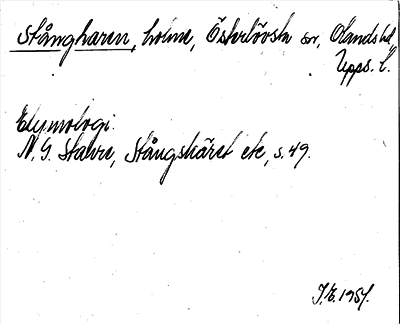 Stångharen, holme, Österlövsta sn, Olands hd,
Upps. l.
Etymologi.
N. G. Stahre, Stångskäret etc, s. 49.
J.E. 1951.